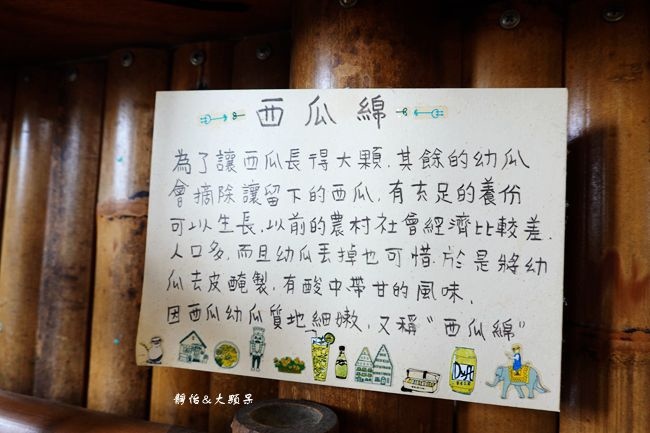 西瓜綿
為了讓西瓜長得大顆,其餘的幼瓜
會摘除讓留下的西瓜,有充足的養份
可以生長,以前的農村社會經濟比較差,
人口多,而且幼瓜丟掉也可惜.於是將幼
瓜去皮醃製,有酸中帶甘的風味,
因西瓜幼瓜質地細嫩,又稱"西瓜綿"